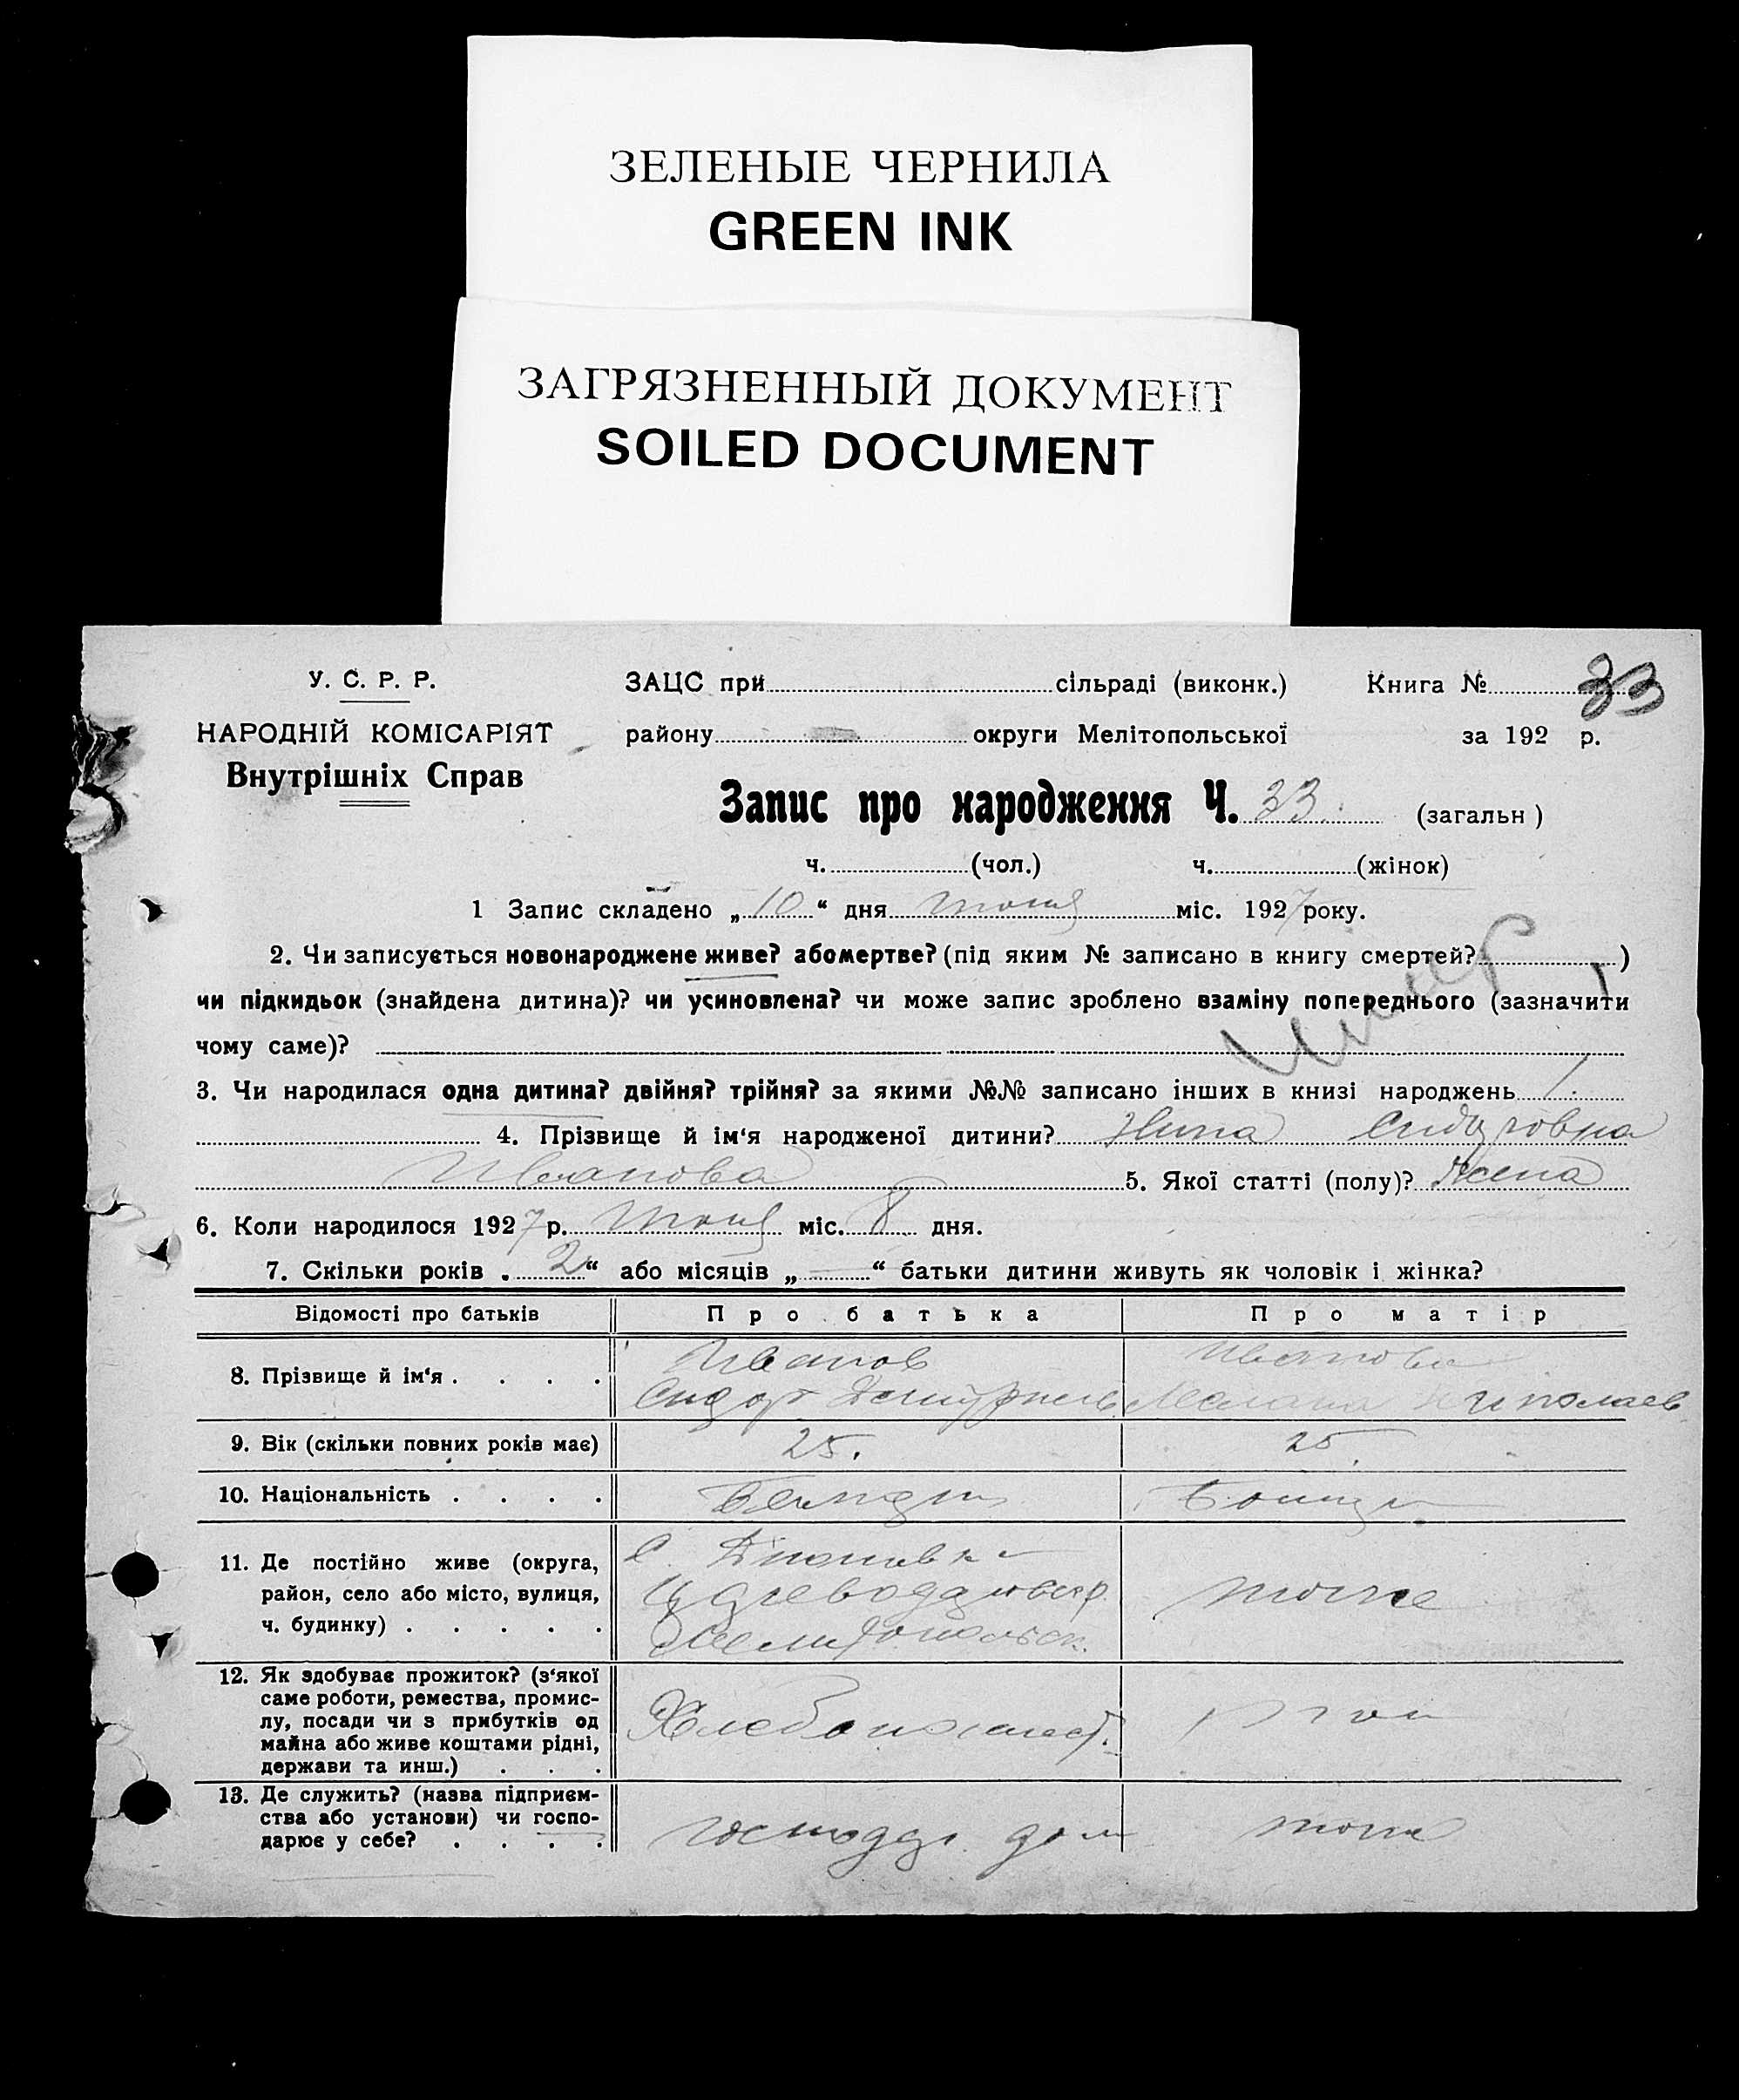 ЗЕЛЕНЫЕ ЧЕРНИЛА
GREEN INK
ЗАГРЯЗНЕННЫЙ ДОКУМЕНТ
SOILED DOCUMENT
У. С. Р. Р.
НАРОДНІЙ КОМІСАРІЯТ
Внутрішніх Справ
ЗАЦС при сільраді (виконк.) Книга № 33
району округи Мелітопольської за 192 р.
Запис про народження Ч. 33. (загальн)
ч. (чол.) ч. (жінок)
1 Запис складено „10“ дня міс. 1927 року.
2. Чи записується новонароджене живе? або мертве? (під яким № записано в книгу смертей? )
чи підкидьок (знайдена дитина)? чи усиновлена? чи може запис зроблено взаміну попереднього (зазначити
чому саме)?
3. Чи народилася одна дитина? двійня? трійня? за якими №№ записано інших в книзі народжень 1.
4. Прізвище й ім‘я народженої дитини? Нина Сидоровна
Иванова 5. Якої статті (полу)? жена
6. Коли народилося 1927 р. міс. 8 дня.
7. Скільки років „2“ або місяців „—“ батьки дитини живуть як чоловік і жінка?
Відомості про батьків Про батька Про матір
8. Прізвище й ім‘я . . . . Иванов Иванова
Сидор Николаев
9. Вік (скільки повних років має) 25. 25
10. Національність . . . .
11. Де постійно живе (округа,
район, село або місто, вулиця,
ч. будинку) . . . . .
с.
Мелитопольск.
тоже
12. Як здобуває прожиток? (з‘якої
саме роботи, ремества, промис-
лу, посади чи з прибутків од
майна або живе коштами рідні,
держави та инш.) . . .
Хлебопашест.
13. Де служить? (назва підприєм-
ства або установи) чи госпо-
дарює у себе? . . . .
тоже